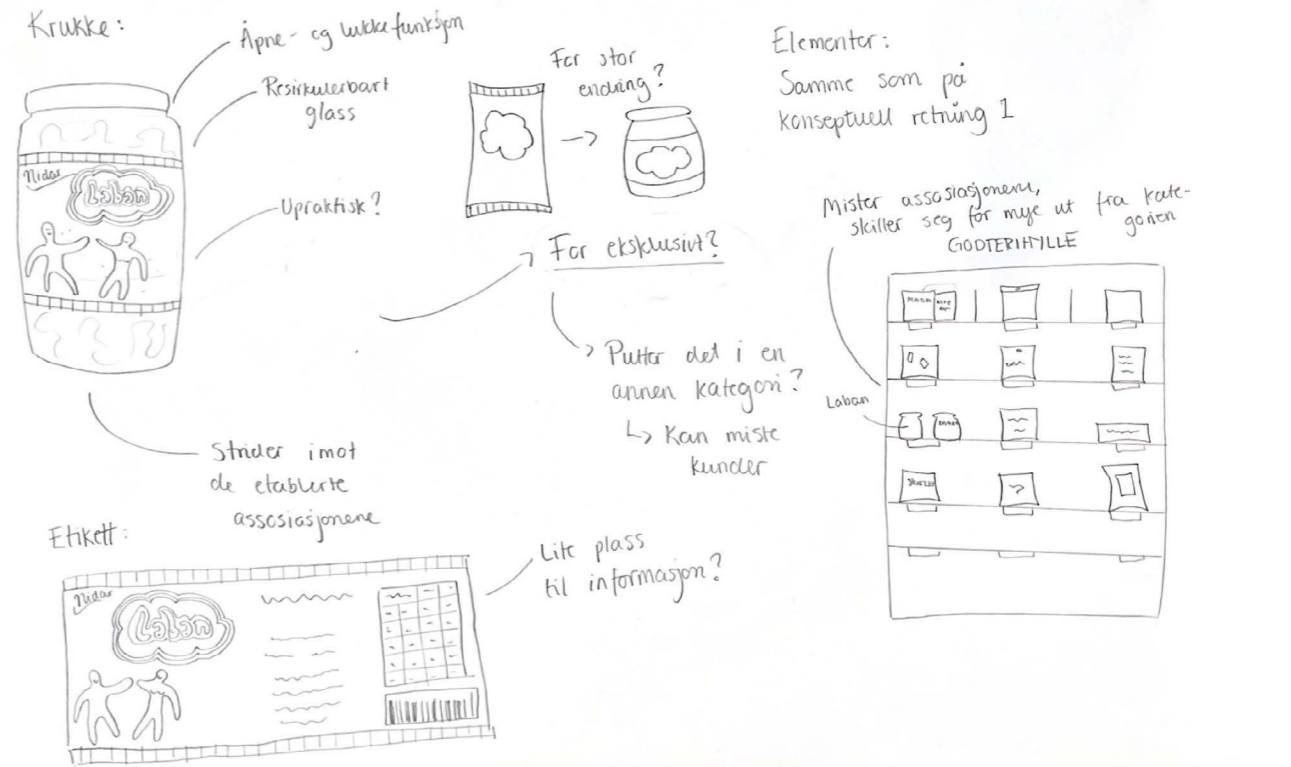 Krukke:
Åpne- og lukkefunksjon
Resirkulerbart
glass
Upraktisk?
Nidar
Laban
Strider imot
de etablerte
assosiasjonene
For stor
endring?
For eksklusivt?
Putter det i en
annen kategori?
↳ Kan miste
kunder
Elementer:
Samme som på
konseptuell retning 1
Mister assosiasjonene,
skiller seg for mye ut fra kate-
gorien
GODTERIHYLLE
Laban
Etikett:
Nidar
Laban
Lite plass
til informasjon?